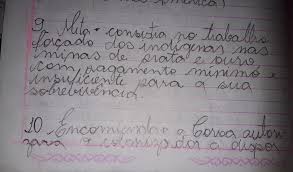 9. Mita - consistia no trabalho
forçado dos indígenas nas
minas de prata e ouro,
com pagamento mínimo e
insuficiente para a sua
sobrevivência.
10. Encomienda a Coroa autori
zava o colonizador a dispor